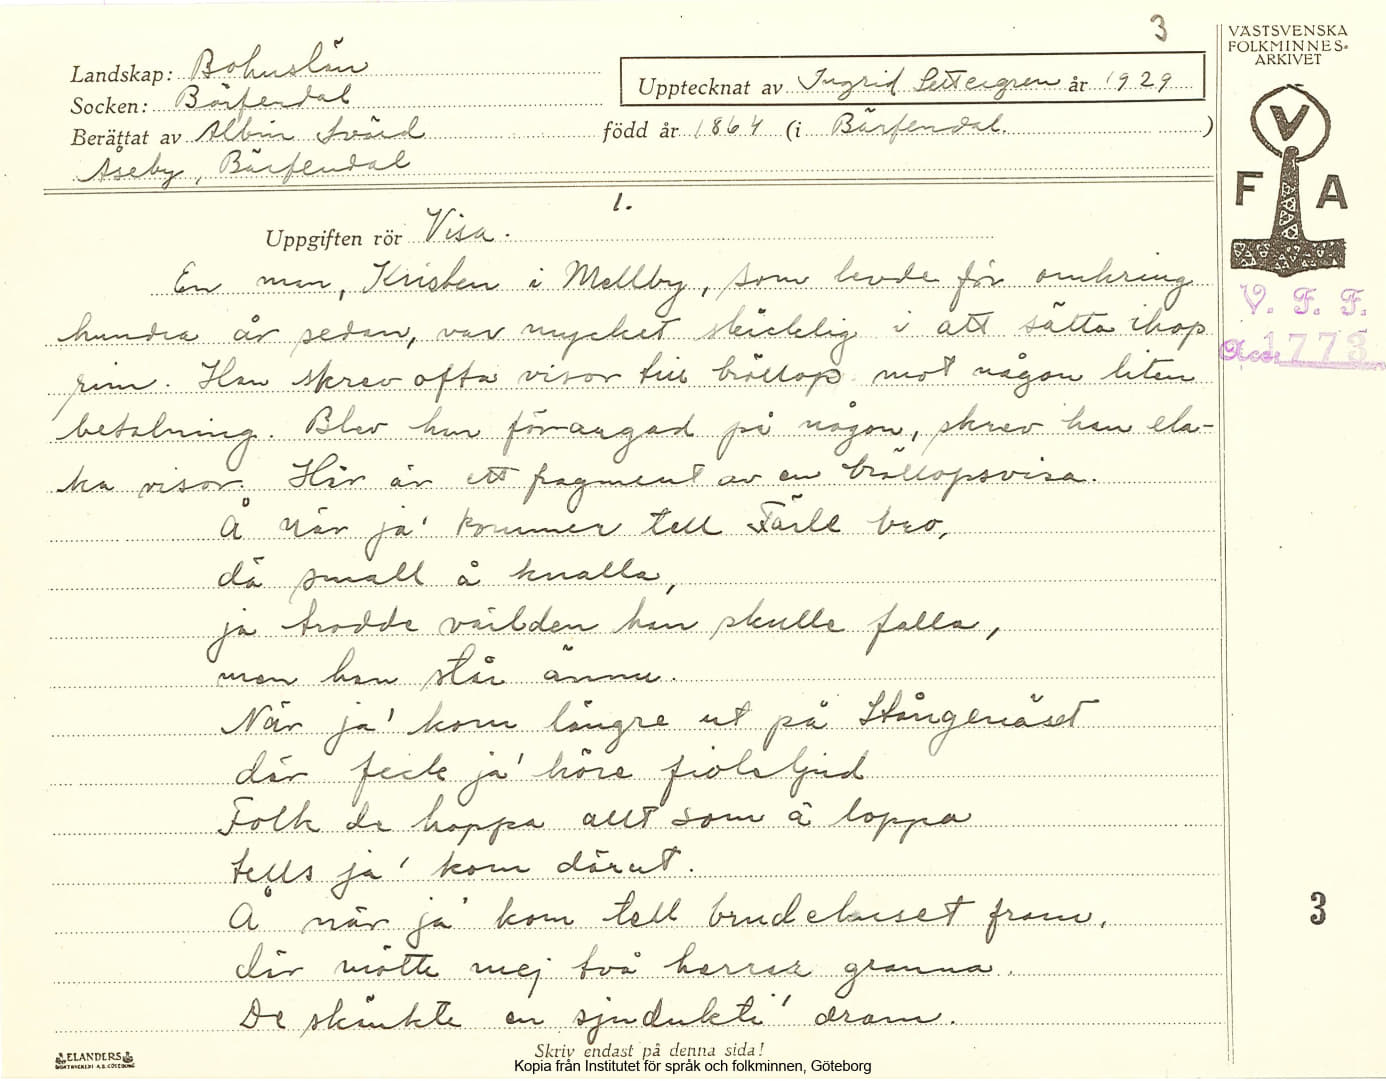 3
VÄSTSVENSKA
FOLKMINNES-
ARKIVET
Landskap: Bohuslän
Upptecknat av Ingrid Settergren år 1929
Socken: Bärfendal
Berättat av Albin Svärd född år 1864 (i Bärfendal.)
Åseby, Bärfendal
V
F A
1.
Uppgiften rör Visa.
En man, Kristen i Mellby, som levde för omkring
V. F. F.
hundra år sedan, var mycket skicklig i att sätta ihop
Acc. 1773
rim. Han skrev ofta visor till bröllop mot någon liten
betalning. Blev han förargad på någon, skrev han ela-
ka visor. Här är ett fragment av en bröllopsvisa.
Å när ja' kommer tell Färle bro,
då small å knalla,
ja trodde världen han skulle falla,
men han står ännu.
När ja' kom längre ut på Stångenäset
där feck ja' höre fiolsljud
Folk de hoppa allt som å loppa
tells ja' kom därut.
Å när ja' kom tell brudehuset fram,
3
där mötte mej två herrar granna.
De skänkte en sjndukti' dram.
Skriv endast på denna sida!
ELANDERS
BOKTRYCKERI A.B. GÖTEBORG
Kopia från Institutet för språk och folkminnen, Göteborg